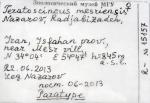 Зоологический музей МГУ
Teratoscincus mesriensis
Nazarov, Radjabizadeh,
Iran, Isfahan prov.
near Mesr vill.
N 34°04' E 54°47' h=845m
a.s.l.
22.06.2013
Leg. Nazarov
nocт. 06-2013
Paratype
R - 15157